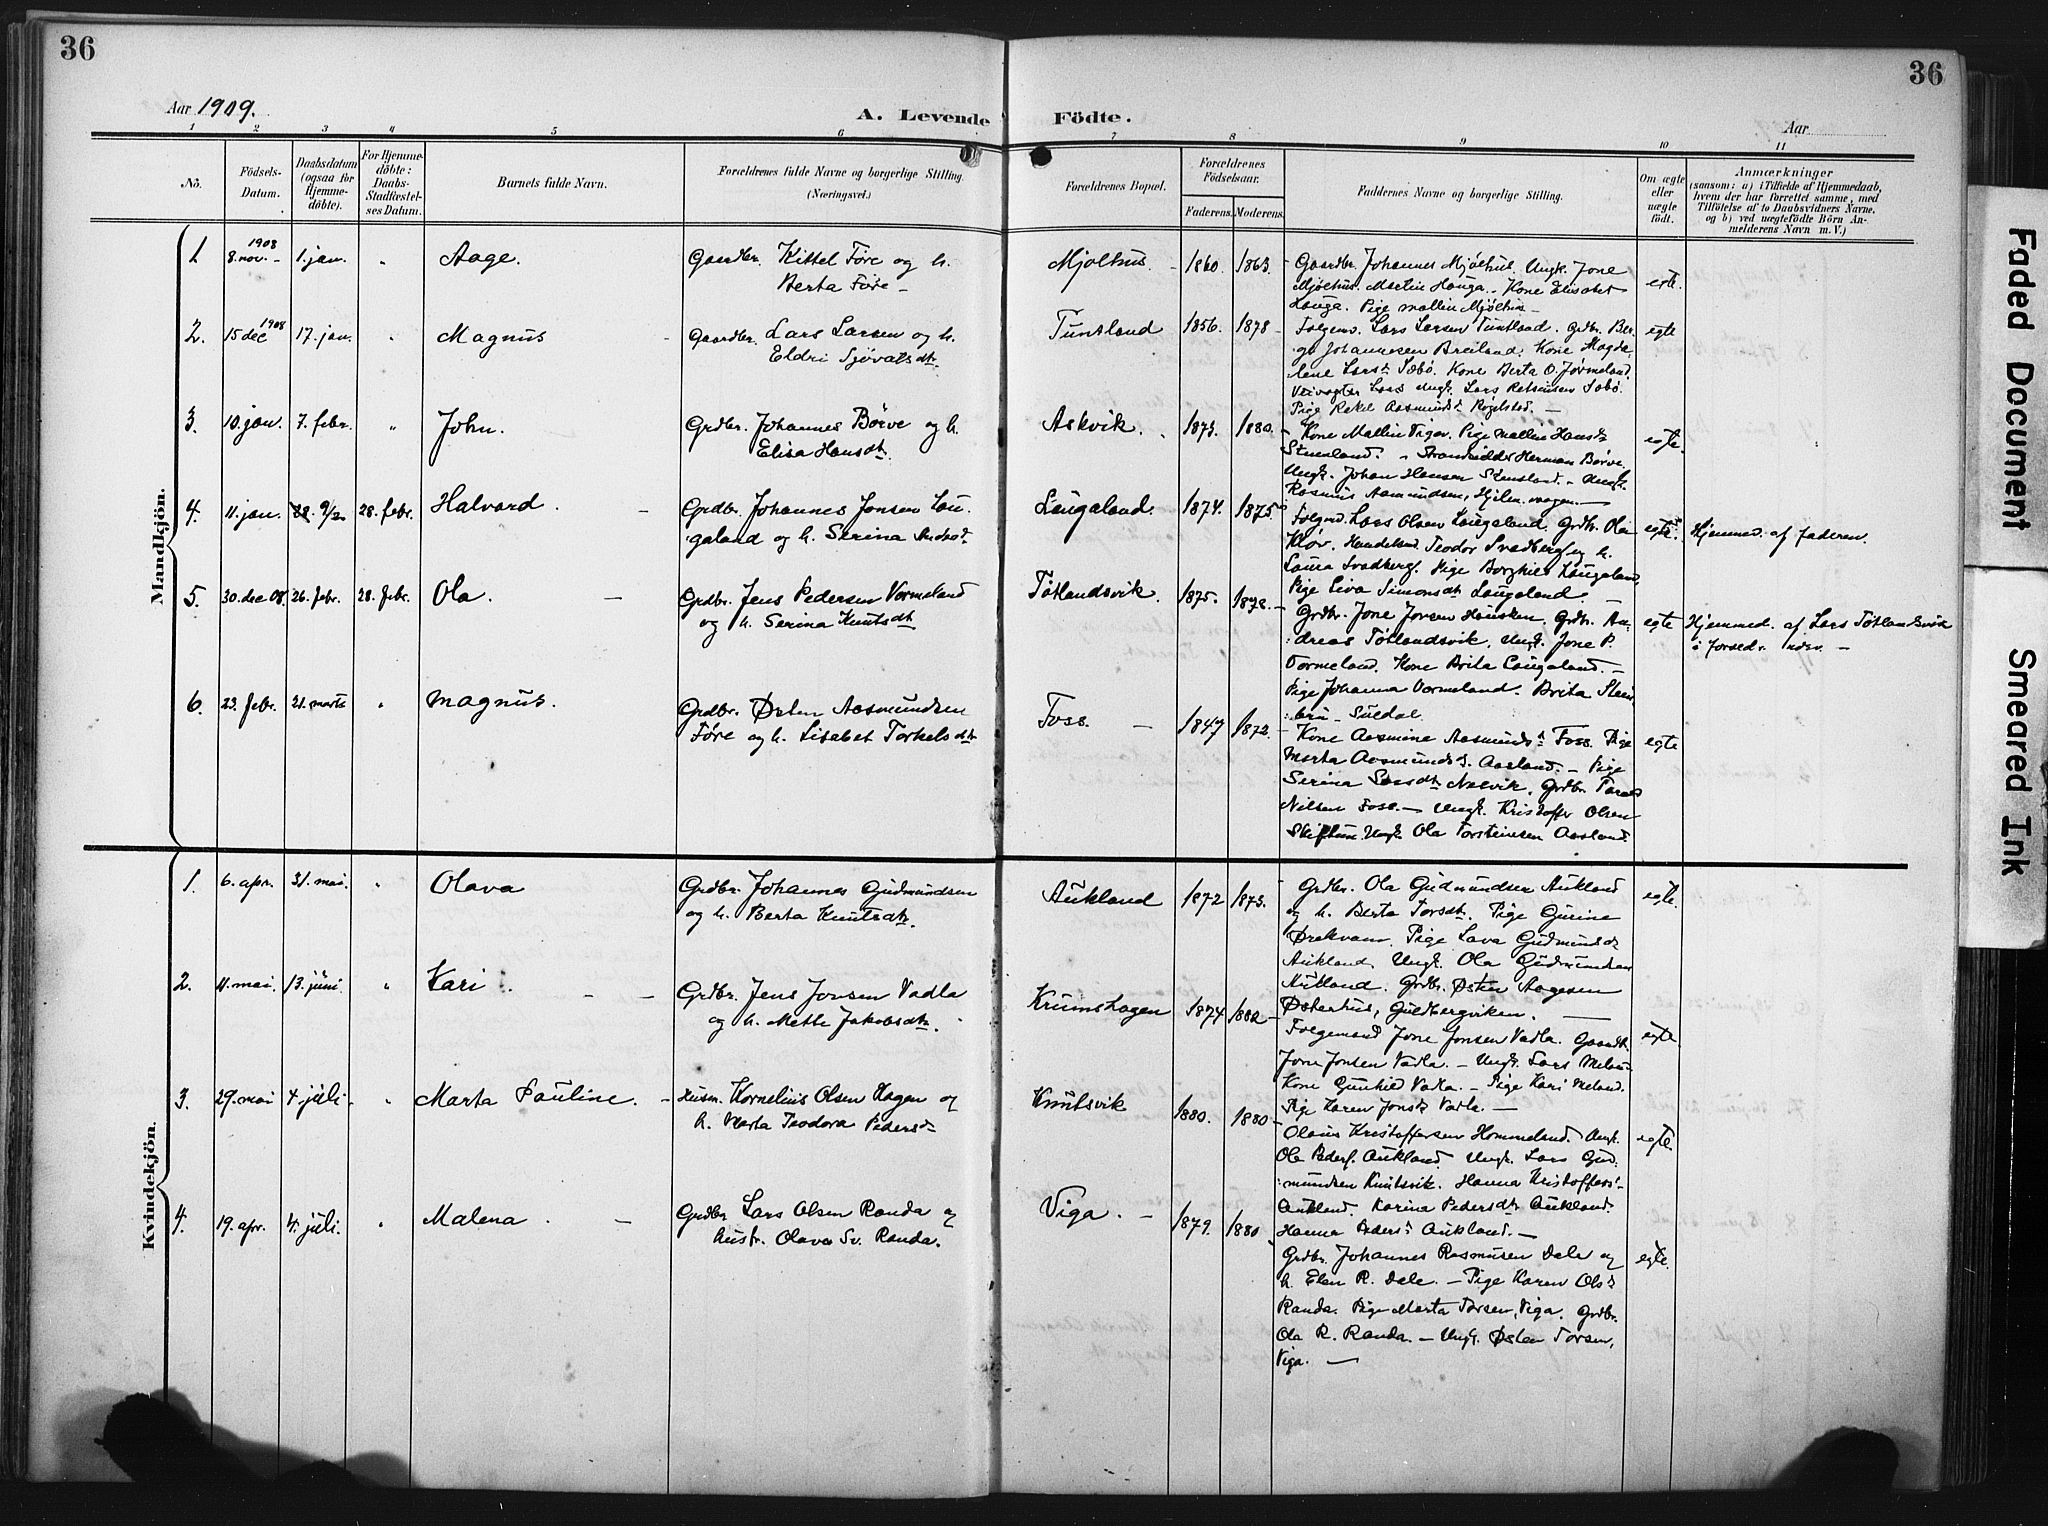 36
36
Aar 1909.
A. Levende Födte.
Aar
1 2 3 4 5 6 7 8 9 10 11
No.
Födsels-
Datum.
Daabsdatum
(ogsaa for
Hjemme-
döbte).
For Hjemme-
döbte:
Daabs-
Stadfæstel-
ses Datum.
Barnets fulde Navn.
Forældrenes fulde Navne og borgerlige Stilling.
(Næringsvei.)
Forældrenes Bopæl.
Forældrenes
Födselsaar.
Faderens. Moderens.
Faddernes Navne og borgerlige Stilling.
Om ægte
eller
uægte
födt.
Anmærkninger
(saasom: a) i Tilfælde af Hjemmedaab,
hvem der har forrettet samme, med
Tilföielse af to Daabsvidners Navne,
og b) ved uægtefödte Börn An-
melderens Navn m. V.)
Mandkjön.
1. 1908 8. nov. - 1. jan. " Aage.
Gaardbr. Kittel Före og h.
Berta Före -
Mjølhus. - 1860. 1863.
Gaardbr. Johannes Mjølhus. Ungk. Jone
Mjølhus. Martin Hauga. - Kone Elisabet
Hauga. Pige Mallin Mjølhus -
egte.
2. 1908 15 dec 17. jan. " Magnus
Gaardbr. Lars Larsen og h.
Eldri Sjovatsdt.
Tuntland 1856. 1878 -
Folgem. Lars Larsen Tuntland. Grdbr. Ber-
ge Johannesen Breiland. Kone Magda-
lene Larsdt Sæbö. Kone Berta O. Jørmeland.
Veivogter Lars Ungk. Lars
Pige Rakel Aasmundsdt -
egte
3. 10. jan. 7. febr. " John.
Grdbr. Johannes Börve og h.
Elisa Hansdt.
Askvik. 1873. 1880. -
Kone Mallin Pige Mallin Hansdt
Steinland. - Strandsidder Herman Børve.
Ungk. Johan Hansen - Ungk.
Rasmus Aamundsen, -
egte.
4. 11. jan. 9/2 28. febr. Halvard. -
Grdbr. Johannes Jonsen Lau-
galand og h. Serina
Laugaland. 1874. 1875.
Folgmd. Lars Olsen Laugaland. Grdbr. Ola
Kløv. Handelsmd. Teodor Svadberg og h.
Laura Svadberg. Pige Borghild Laugaland
Pige Siva Simonsdt Laugaland. -
egte. Hjemmed. af faderen.
5. 30. dec 08. 26. febr. 28. febr. Ola. -
Grdbr. Jens Pedersen Vormeland
og h. Serina Knutsdt
Tøtlandsvik. 1875. 1878. -
Grdbr. Jone Jonsen Hausken. Grdbr. An-
dreas Tøtlandsvik. Ungk. Jone P.
Vormeland. Kone Brita Laugaland. -
Pige Johanna Vormeland. Brita Stein-
bru - Suldal.
egte Hjemmed. af Lars Tøtlandsvik
6. 23. febr. 21. marts " Magnus.
Grdbr. Østen Aasmundsen
Føre og h. Lisabet Torkelsdt
Foss. - 1847 1872. -
Kone Aasmine Aasmundsdt Foss. Pige
Marta Aasmundsd. Aasland. - Pige
Serina Larsdt. Nesvik. Grdbr.
Nilsen Foss. - Ungk. Kristoffer Olsen
Skiftun. Ungk. Ola Torsteinsen Aasland.
egte
Kvindekjön.
1. 6. apr. 31. mai. " Olava
Grdbr. Johannes Gudmundsen
og h. Berta Knutsdt.
Aukland 1872 1873.
Grdbr. Ola Gudmundsen Aukland
og h. Berta Torsdt. Pige Gurine
Ørekvam. Pige Lava Gudmundsdt
Aukland. Ungk. Ola Gudmundsen
Aukland. Grdbr. Østen Aagesen
Østerhus, Guldbergviken. -
egte.
2. 11. mai. 13. juni. " Kari. - -
Grdbr. Jens Jonsen Vadla
og h. Mette Jakobsdt.
Krumshagen 1874 1882 -
Folgemand Jone Jonsen Vadla. Gaardb.
Jone Jonsen Vadla. - Ungk. Lars
Kone Gunhild Vadla. - Pige Kari Meland.
Pige Karen Jonsdt Vadla. -
egte.
3. 29. mai 4. juli - " Marta Pauline. -
Husm. Kornelius Olsen Hagen og
h. Marta Teodora Pedersdt
Knutsvik 1880. 1880 -
Olaus Kristoffersen Hommeland. Ungk.
Ola Peders. Aukland. Ungk. Lars Gud-
mundsen Knutsvik. Hanna Kristoffers-
Aukland. Karina Pedersdt Aukland.
Hanna Pedersdt Aukland. -
egte.
4. 19. apr. 4. juli. " Malena. -
Grdbr Lars Olsen Randa og
hustr. Olava Sv. Randa.
Viga. - 1879. 1880
Grdbr. Johannes Rasmusen Dale og
h. Elen R. Dale. - Pige Karen Olsdt
Randa. Pige Marta Torsen, Viga. Grdbr.
Ola R. Randa. - Ungk. Østen Torsen,
Viga. -
egte.
Faded Document
Smeared Ink